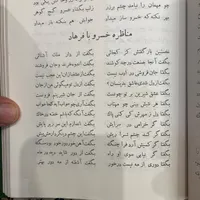 چو مهمان را نیامد چشم بر زر ز لب بگشاد خسرو درج گوهر
بهر نکته که خسرو ساز میداد جوابش هم به نکته باز میداد
مناظره خسرو با فرهاد
نخستین بار گفتش کز کجائی بگفت از دار ملک آشنائی
بگفت آنجا بصنعت در چه کوشند بگفت انده خرند و جان فروشند
بگفتا جان فروشی در ادب نیست بگفت از عشقبازان این عجب نیست
بگفت از دل شدی عاشق بدینسان بگفت از دل تو میگوئی من از جان
بگفتا عشق شیرین بر تو چونست بگفت از جان شیرینم فزونست
بگفتا هر شبش بینی چو مهتاب بگفت آری چو خواب آید کجا خواب
بگفتا دل ز مهرش کی کنی پاک بگفت آنگه که باشم خفته در خاک
بگفتا گر خرامی در سرایش بگفت اندازم این سر زیر پایش
بگفتا گر کند چشم ترا ریش بگفت این چشم دیگر دارمش پیش
بگفتا گر کسیش آرد فرا چنگ بگفت آهن خورد ور خود بود سنگ
بگفتا گر نیابی سوی او راه بگفت از دور شاید دید در ماه
بگفتا دوری از مه نیست در خور بگفت آشفته از مه دور بهتر